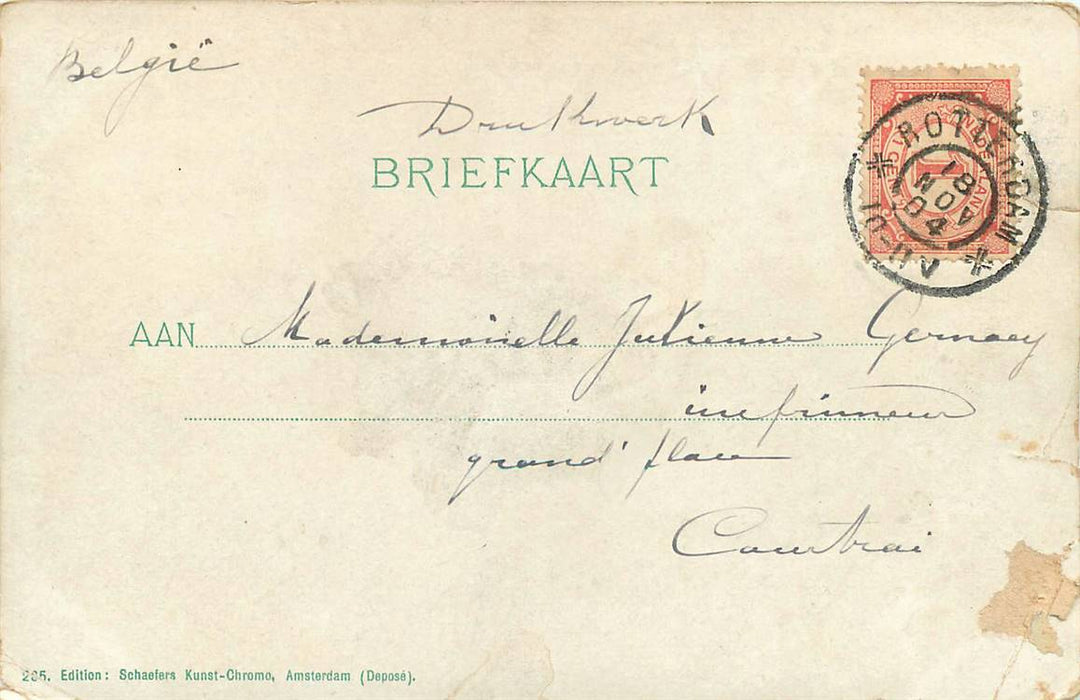 België
Drukwerk
BRIEFKAART
ROTTERDAM
18 NOV 04
1
AAN Mademoiselle Julienne Gernaey
imprimeur
grand' place
Courtrai
235. Edition: Schaefers Kunst-Chromo, Amsterdam (Deposé).